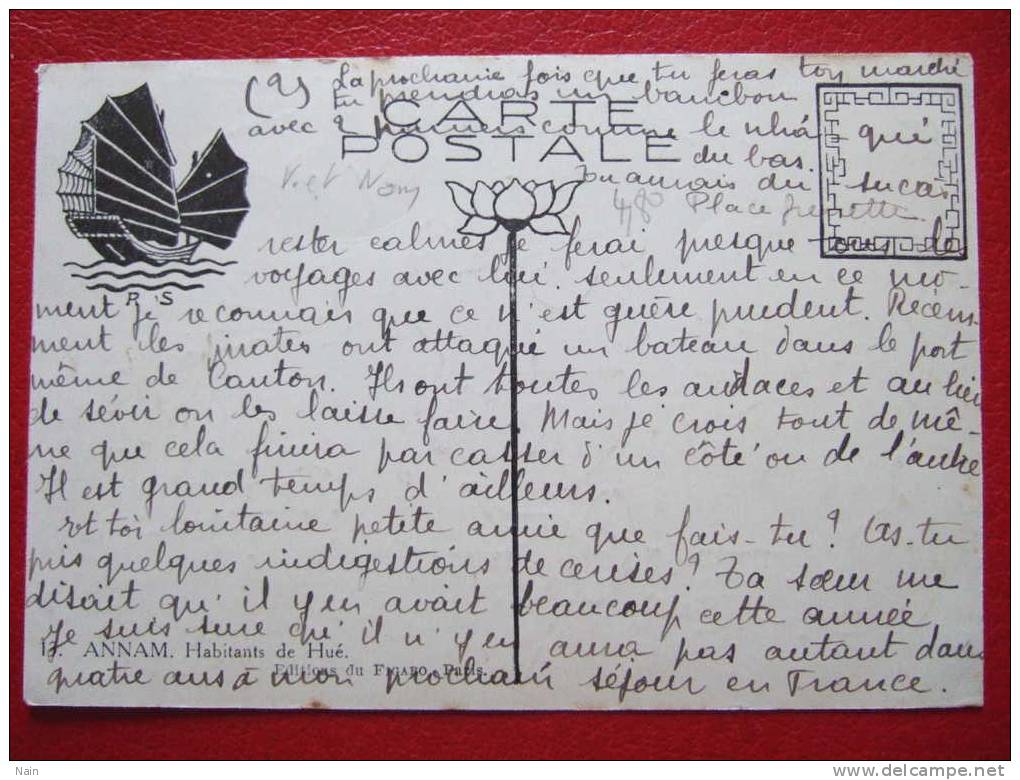 (9) La prochaine fois que tu feras ton marché
tu prendras un bambou
CARTE
avec 2 paniers comme le nhà-qué
POSTALE
du bas.
Tu aurais du succès
Viet Nam
480 Place Grenette
rester calmes je ferai presque tous les
voyages avec lui. seulement en ce mo-
P S
ment je reconnais que ce n'est guère prudent. Récem-
ment les pirates ont attaqué un bateau dans le port
même de Canton. Ils ont toutes les audaces et au lieu
de sévir on les laisse faire. Mais je crois tout de mê-
me que cela finira par casser d'un côté ou de l'autre
Il est grand temps d'ailleurs.
Et toi lointaine petite amie que fais-tu? As-tu
pris quelques indigestions de cerises? Ta sœur me
disait qu'il y en avait beaucoup cette année
Je suis sure qu'il n'y en aura pas autant dans
17. ANNAM. Habitants de Hué.
Editions du FIGARO - Paris.
quatre ans à mon prochain séjour en France.
Nain
delcampe.net